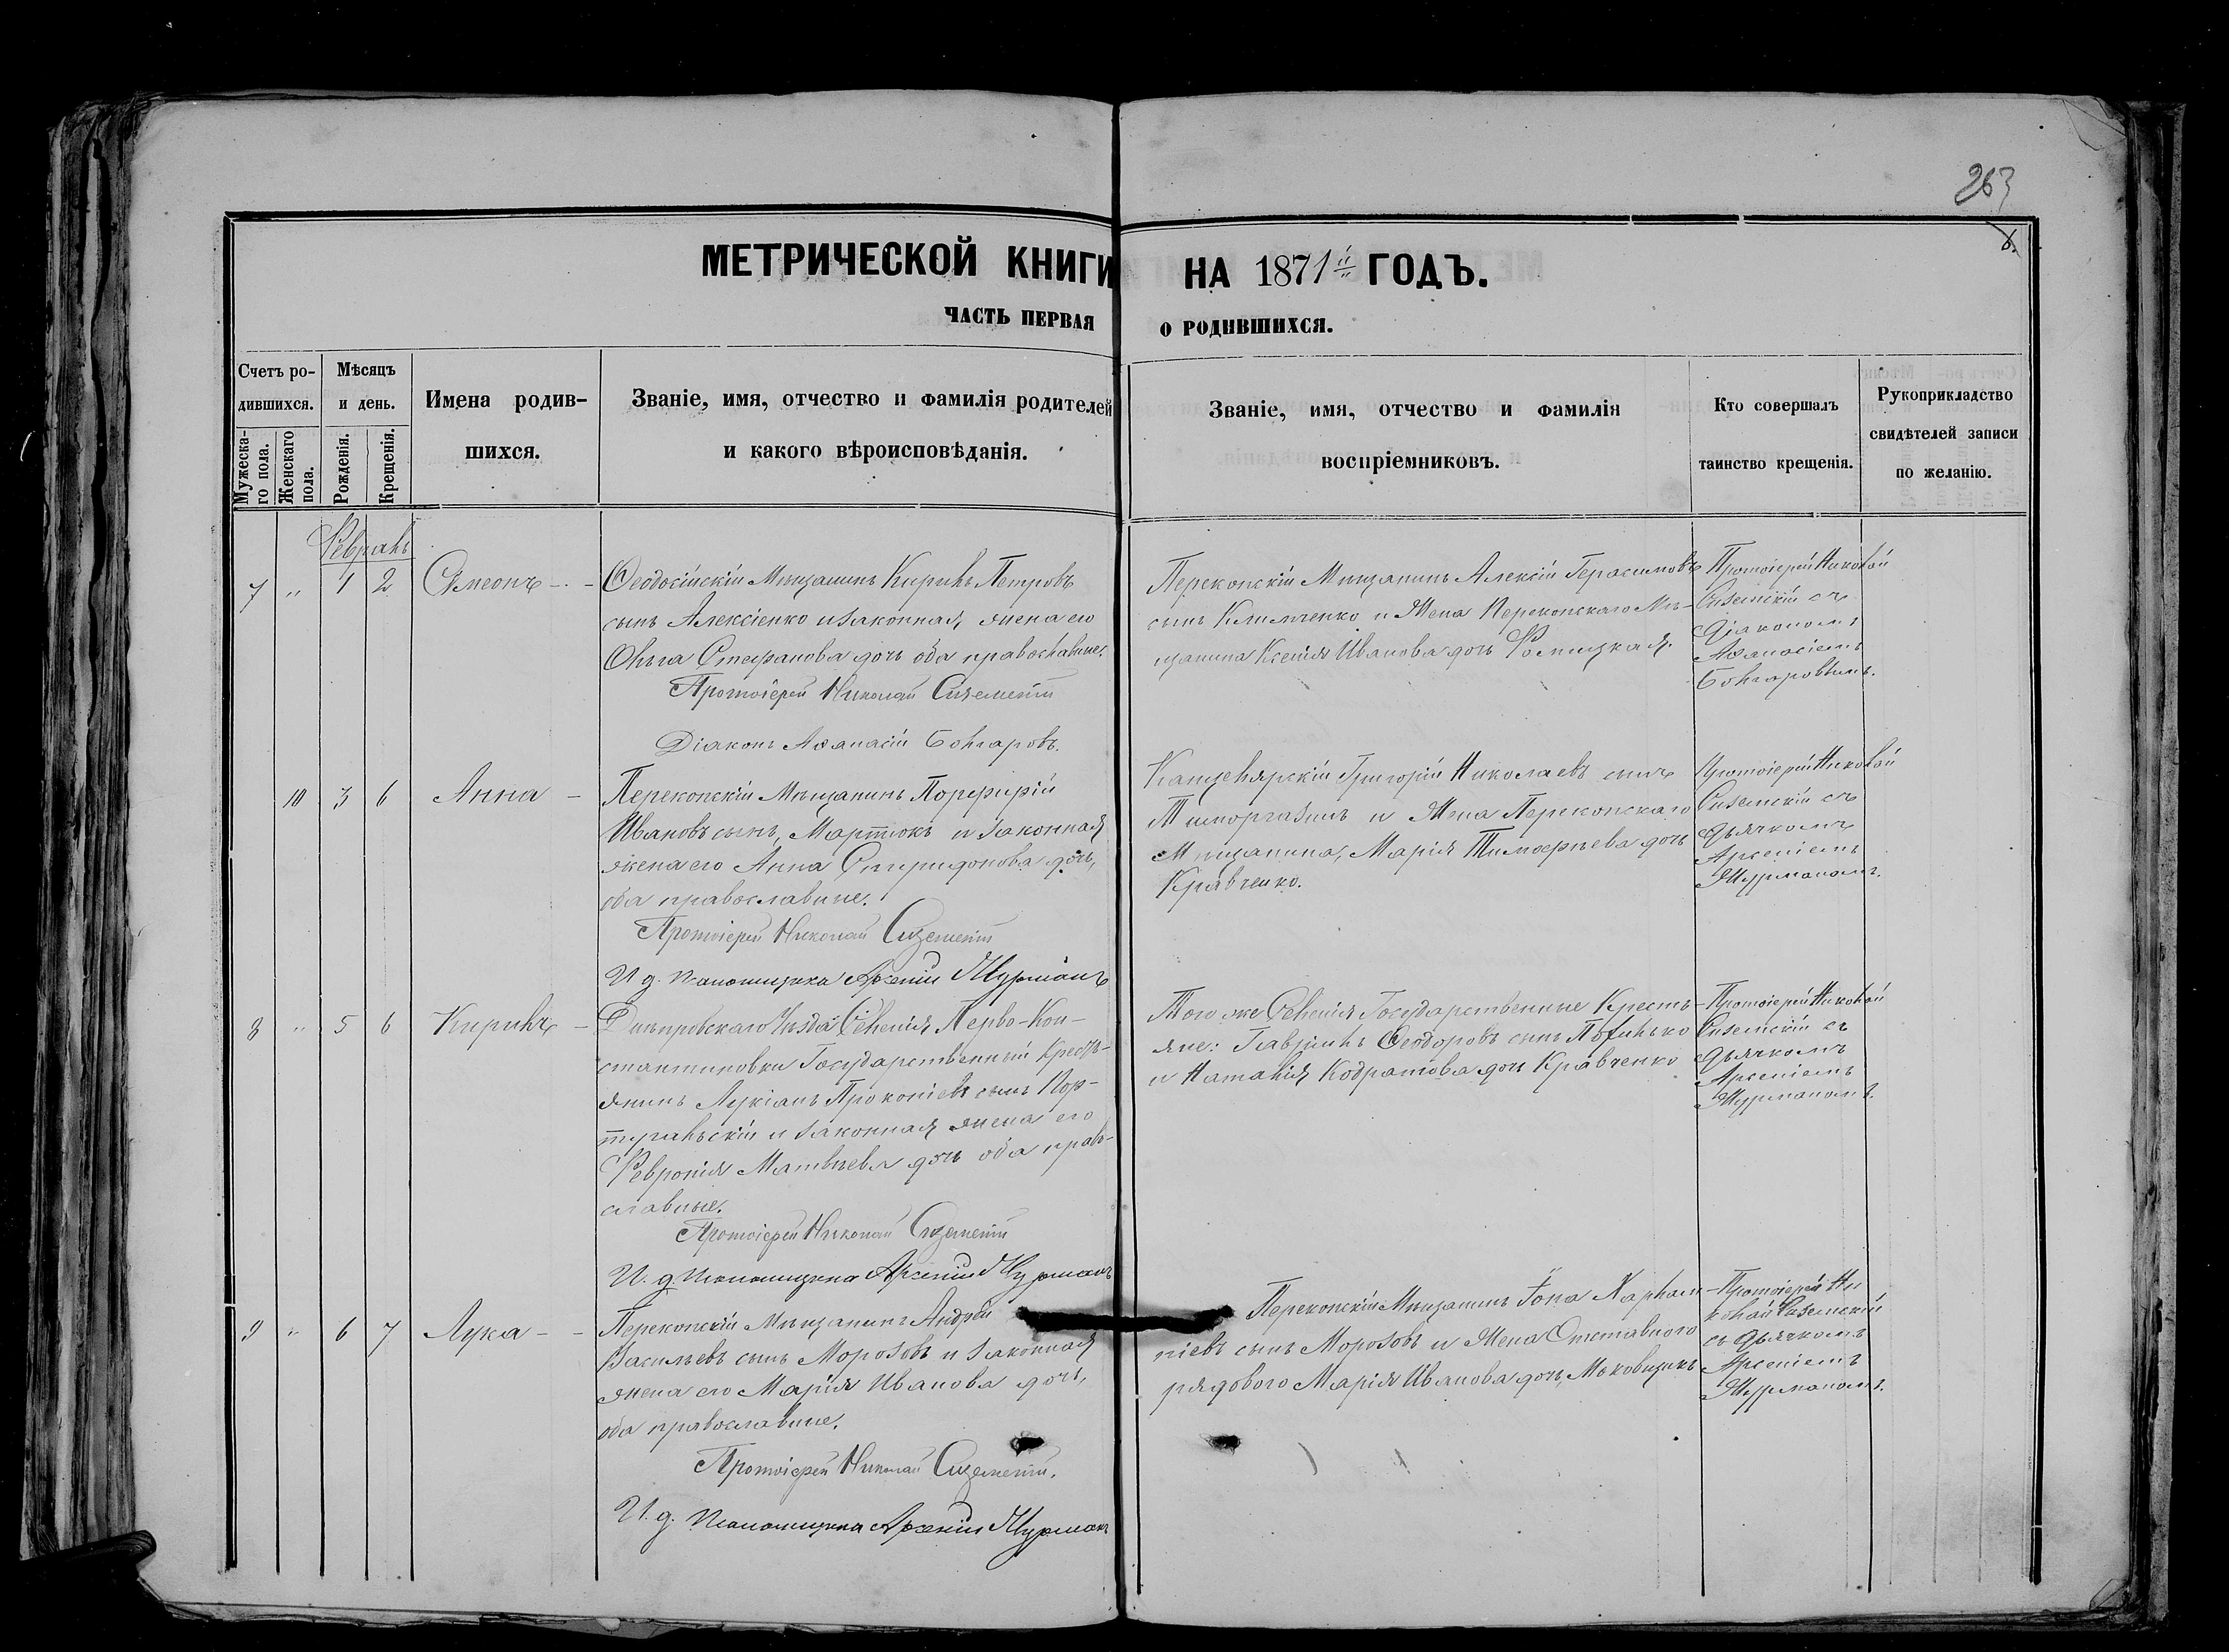 263
МЕТРИЧЕСКОЙ КНИГИ НА 1871й ГОДЪ.
ЧАСТЬ ПЕРВАЯ О РОДИВШИХСЯ.
Счетъ ро-
дившихся.
Мужеска-
го пола.
Женскаго
пола.
Мѣсяцъ
и день.
Рожденія.
Крещенія.
Имена родив-
шихся.
Званіе, имя, отчество и фамилія родителей
и какого вѣроисповѣданія.
Званіе, имя, отчество и фамилія
воспріемниковъ.
Кто совершалъ
таинство крещенія.
Рукоприкладство
свидѣтелей записи
по желанію.
Февраль
7 " 1 2 Симеонъ
Ѳеодосійскій Мѣщанинъ Кирилъ Петровъ
сынъ Алексіенко и законная жена его
Ольга Стефанова дочь оба православные.
Протоіерей Николай Сиземскій
Діаконъ Аѳанасій Болгаровъ.
Перекопскій Мѣщанинъ Алексій Герасимовъ
сынъ Климченко и Жена Перекопскаго Мѣ-
щанина Ксенія Иванова дочь
Протоіерей Николай
Сиземскій съ
Діакономъ
Аѳанасіемъ
Болгаровымъ.
10 3 6 Анна
Перекопскій Мѣщанинъ Порфирій
Ивановъ сынъ, Мартюкъ и законная
жена его Анна Спиридонова дочь,
оба православные.
Протоіерей Николай Сиземскій
И. д. Пономщика Арсеній Журманъ
Канцелярскій Григорій Николаевъ сынъ
и Жена Перекопскаго
Мѣщанина, Марія Тимоѳеѣва дочь
Кравченко.
Протоіерей Николай
Сиземскій съ
Дьячкомъ
Арсеніемъ
Журманомъ.
8 " 5 6 Кирилъ
Днѣпровскаго Уѣзда Селенія Перво-Кон-
стантиновки Государственный Кресть-
янинъ Лукіанъ Прокопіевъ сынъ Пор-
тугальскій и законная жена его
Февронія Матвѣева дочь оба прав-
славные.
Протоіерей Николай Сиземскій
И. д. Пономщика Арсеній Журманъ
Того же Селенія Государственные Кресть-
яне: Гавріилъ Ѳеодоровъ сынъ
и Наталія Кодратова дочь Кравченко
Протоіерей Николай
Сиземскій съ
Дьячкомъ
Арсеніемъ
Журманомъ.
9 " 6 7 Лука
Перекопскій Мѣщанинъ Андрей
Васильевъ сынъ Морозовъ и законная
жена его Марія Иванова дочь,
оба православные.
Протоіерей Николай Сиземскій.
И. д. Пономщика Арсеній Журманъ
Перекопскій Мѣщанинъ Іона Харлам-
піевъ сынъ Морозовъ и Жена Отставного
рядового Марія Иванова дочь,
Протоіерей Ни
колай Сиземскій
съ Дьячкомъ
Арсеніемъ
Журманомъ.